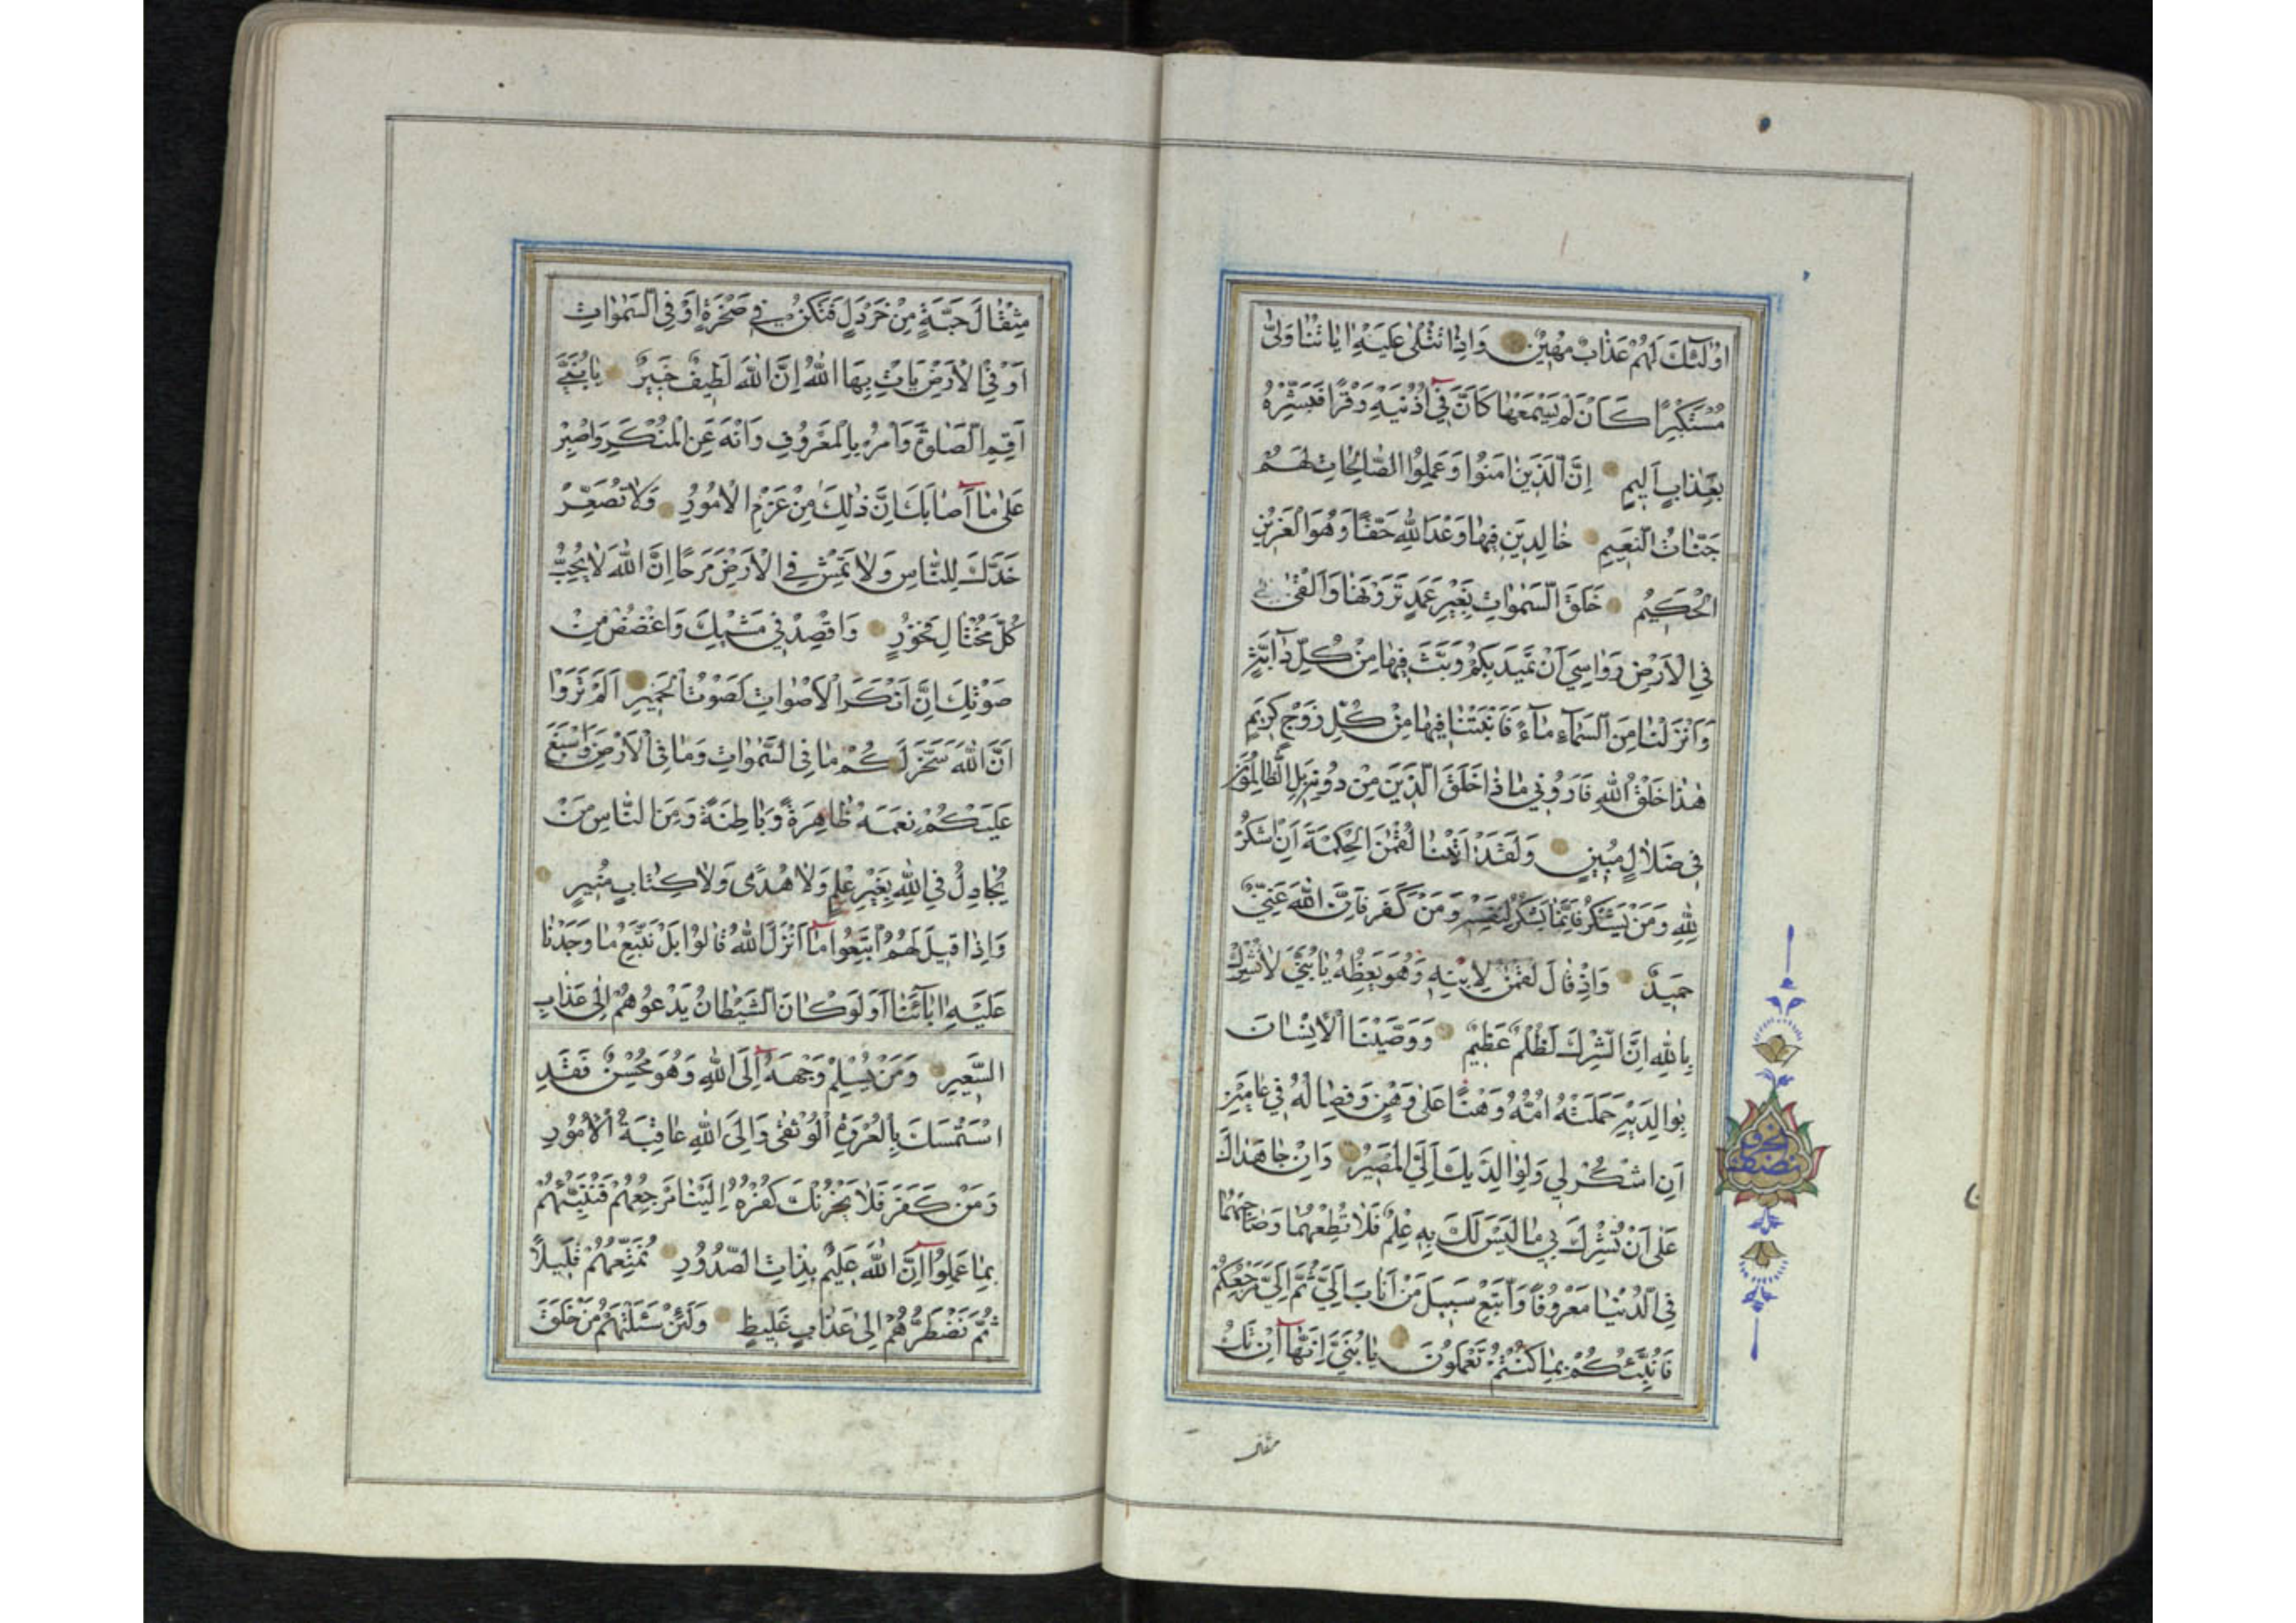 اُولٰئِكَ لَهُمْ عَذَابٌ مُهِينٌ وَاِذَا تُتْلٰى عَلَيْهِ اٰيَاتُنَا وَلّٰى
مُسْتَكْبِرًا كَاَنْ لَمْ يَسْمَعْهَا كَاَنَّ فِي اُذُنَيْهِ وَقْرًا فَبَشِّرْهُ
بِعَذَابٍ اَلِيمٍ اِنَّ الَّذِينَ اٰمَنُوا وَعَمِلُوا الصَّالِحَاتِ لَهُمْ
جَنَّاتُ النَّعِيمِ خَالِدِينَ فِيهَا وَعْدَ اللّٰهِ حَقًّا وَهُوَ الْعَزِيزُ
الْحَكِيمُ خَلَقَ السَّمٰوَاتِ بِغَيْرِ عَمَدٍ تَرَوْنَهَا وَاَلْقٰى فِي
فِي الْاَرْضِ رَوَاسِيَ اَنْ تَمِيدَ بِكُمْ وَبَثَّ فِيهَا مِنْ كُلِّ دَابَّةٍ
وَاَنْزَلْنَا مِنَ السَّمَاءِ مَاءً فَاَنْبَتْنَا فِيهَا مِنْ كُلِّ زَوْجٍ كَرِيمٍ
هٰذَا خَلْقُ اللّٰهِ فَاَرُونِي مَاذَا خَلَقَ الَّذِينَ مِنْ دُونِهِ بَلِ الظَّالِمُونَ
فِي ضَلَالٍ مُبِينٍ وَلَقَدْ اٰتَيْنَا لُقْمٰنَ الْحِكْمَةَ اَنِ اشْكُرْ
لِلّٰهِ وَمَنْ يَشْكُرْ فَاِنَّمَا يَشْكُرُ لِنَفْسِهِ وَمَنْ كَفَرَ فَاِنَّ اللّٰهَ غَنِيٌّ
حَمِيدٌ وَاِذْ قَالَ لُقْمٰنُ لِابْنِهِ وَهُوَ يَعِظُهُ يَا بُنَيَّ لَا تُشْرِكْ
بِاللّٰهِ اِنَّ الشِّرْكَ لَظُلْمٌ عَظِيمٌ وَوَصَّيْنَا الْاِنْسَانَ
بِوَالِدَيْهِ حَمَلَتْهُ اُمُّهُ وَهْنًا عَلٰى وَهْنٍ وَفِصَالُهُ فِي عَامَيْنِ
اَنِ اشْكُرْ لِي وَلِوَالِدَيْكَ اِلَيَّ الْمَصِيرُ وَاِنْ جَاهَدَاكَ
عَلٰى اَنْ تُشْرِكَ بِي مَا لَيْسَ لَكَ بِهِ عِلْمٌ فَلَا تُطِعْهُمَا وَصَاحِبْهُمَا
فِي الدُّنْيَا مَعْرُوفًا وَاتَّبِعْ سَبِيلَ مَنْ اَنَابَ اِلَيَّ ثُمَّ اِلَيَّ مَرْجِعُكُمْ
فَاُنَبِّئُكُمْ بِمَا كُنْتُمْ تَعْمَلُونَ يَا بُنَيَّ اِنَّهَا اِنْ تَكُ
مثقال
مِثْقَالَ حَبَّةٍ مِنْ خَرْدَلٍ فَتَكُنْ فِي صَخْرَةٍ اَوْ فِي السَّمٰوَاتِ
اَوْ فِي الْاَرْضِ يَأْتِ بِهَا اللّٰهُ اِنَّ اللّٰهَ لَطِيفٌ خَبِيرٌ يَا بُنَيَّ
اَقِمِ الصَّلٰوةَ وَأْمُرْ بِالْمَعْرُوفِ وَانْهَ عَنِ الْمُنْكَرِ وَاصْبِرْ
عَلٰى مَا اَصَابَكَ اِنَّ ذٰلِكَ مِنْ عَزْمِ الْاُمُورِ وَلَا تُصَعِّرْ
خَدَّكَ لِلنَّاسِ وَلَا تَمْشِ فِي الْاَرْضِ مَرَحًا اِنَّ اللّٰهَ لَا يُحِبُّ
كُلَّ مُخْتَالٍ فَخُورٍ وَاقْصِدْ فِي مَشْيِكَ وَاغْضُضْ مِنْ
صَوْتِكَ اِنَّ اَنْكَرَ الْاَصْوَاتِ لَصَوْتُ الْحَمِيرِ اَلَمْ تَرَوْا
اَنَّ اللّٰهَ سَخَّرَ لَكُمْ مَا فِي السَّمٰوَاتِ وَمَا فِي الْاَرْضِ وَاَسْبَغَ
عَلَيْكُمْ نِعَمَهُ ظَاهِرَةً وَبَاطِنَةً وَمِنَ النَّاسِ مَنْ
يُجَادِلُ فِي اللّٰهِ بِغَيْرِ عِلْمٍ وَلَا هُدًى وَلَا كِتَابٍ مُنِيرٍ
وَاِذَا قِيلَ لَهُمُ اتَّبِعُوا مَا اَنْزَلَ اللّٰهُ قَالُوا بَلْ نَتَّبِعُ مَا وَجَدْنَا
عَلَيْهِ اٰبَائَنَا اَوَلَوْ كَانَ الشَّيْطَانُ يَدْعُوهُمْ اِلٰى عَذَابِ
السَّعِيرِ وَمَنْ يُسْلِمْ وَجْهَهُ اِلَى اللّٰهِ وَهُوَ مُحْسِنٌ فَقَدِ
اسْتَمْسَكَ بِالْعُرْوَةِ الْوُثْقٰى وَاِلَى اللّٰهِ عَاقِبَةُ الْاُمُورِ
وَمَنْ كَفَرَ فَلَا يَحْزُنْكَ كُفْرُهُ اِلَيْنَا مَرْجِعُهُمْ فَنُنَبِّئُهُمْ
بِمَا عَمِلُوا اِنَّ اللّٰهَ عَلِيمٌ بِذَاتِ الصُّدُورِ نُمَتِّعُهُمْ قَلِيلًا
ثُمَّ نَضْطَرُّهُمْ اِلٰى عَذَابٍ غَلِيظٍ وَلَئِنْ سَئَلْتَهُمْ مَنْ خَلَقَ